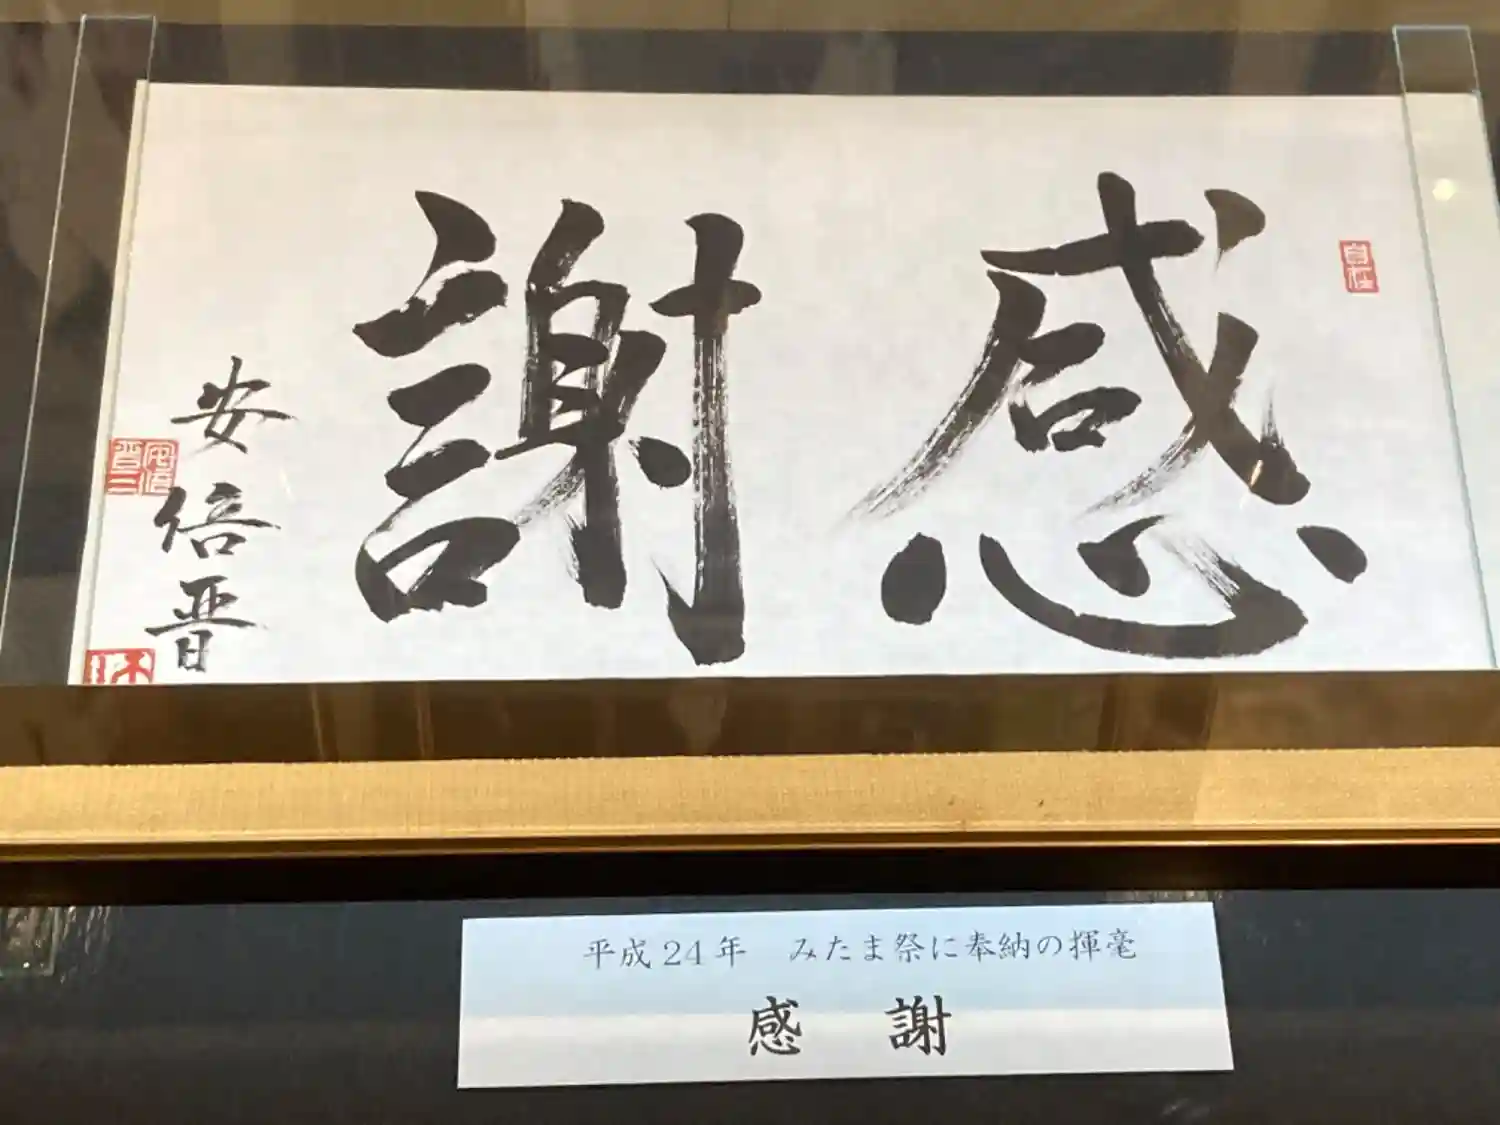 感謝
安倍晋
安倍晋三
平成24年　みたま祭に奉納の揮毫
感　謝